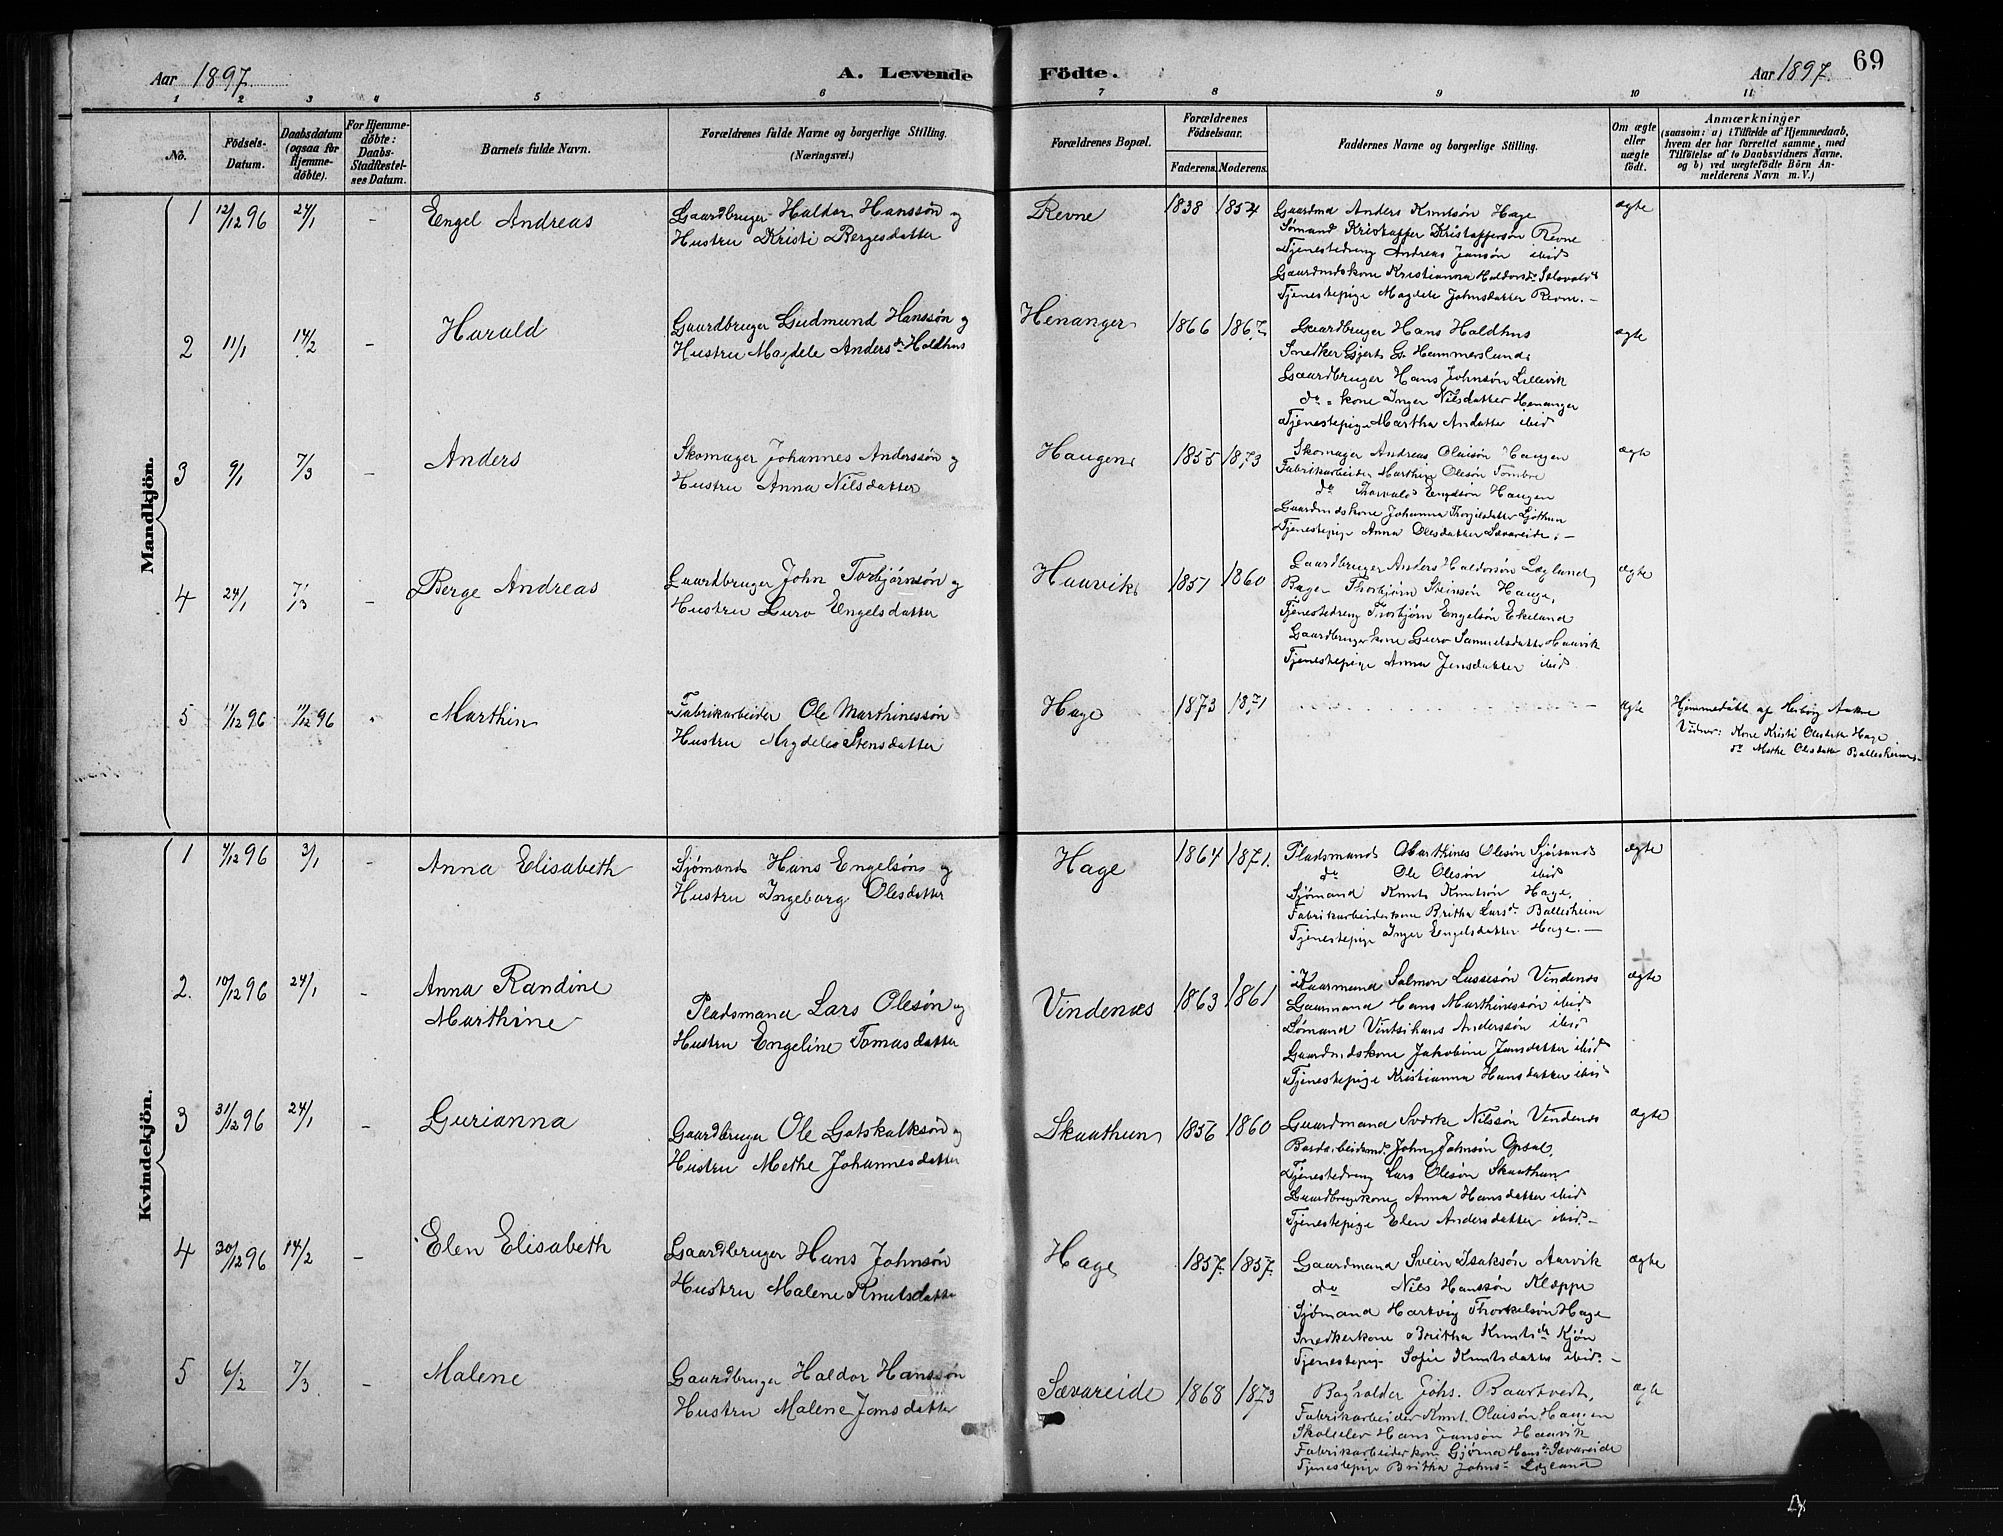 Aar 1897.
A. Levende Födte.
Aar 1897.
69
1 2 3 4 5 6 7 8 9 10 11
No.
Fødsels-
Datum.
Daabsdatum
(ogsaa for
Hjemme-
døbte).
For Hjemme-
døbte:
Daabs-
Stadfæstel-
ses Datum.
Barnets fulde Navn.
Forældrenes fulde Navne og borgerlige Stilling.
(Næringsvei.)
Forældrenes Bopæl.
Forældrenes
Födselsaar.
Faderens. Moderens.
Faddernes Navne og borgerlige Stilling.
Om ægte
eller
uægte
født.
Anmærkninger
(saasom: a) i Tilfælde af Hjemmedaab,
hvem der har forrettet samme, med
Tilføielse af to Daabsvidners Navne,
og b) ved uægtefødte Börn An-
melderens Navn m. V.)
Mandkjön.
1 12/12 96 24/1 - Engel Andreas
Gaardbruger Haldor Hanssøn og
Hustru Kristi Bergesdatter
Revne 1838 1854
Gaardmd Anders Knutsøn Hage
Sømand Kristoffer Kristoffersøn Revne
Tjenestedreng Andreas Jansøn ibid
Gaardmdskone Kristianna Haldorsdr
Tjenestepige Magdele Johnsdatter Revne. -
ægte
2 11/1 14/2 - Harald
Gaardbruger Gudmund Hanssøn og
Hustru Magdele Andersdr Holdhus
Henanger 1866 1867
Gaardbruger Hans Holdhus
Snedker Gjert G. Hammersland
Gaardbruger Hans Johnsøn Lillevik
do. kone Inger Nilsdatter Henanger
Tjenestepige Martha Andatter ibid
ægte
3 9/1 7/3 - Anders
Skomager Johannes Anderssøn og
Hustru Anna Nilsdatter
Haugen 1855 1873
Skomager Andreas Olaisøn Haugen
Fabrikarbeider Marthin Olesøn Tombre
do Thorvald Haugen
Gaardmdskone Johanna
Tjenestepige Anna Olesdatter Sævareide. -
ægte
4 24/1 7/3 - Berge Andreas
Gaardbruger John Torbjørnsøn og
Hustru Guro Engelsdatter
Haavik 1857 1860
Gaardbruger Anders Haldorsøn Lægland
Bager Thorbjørn Steinsøn Hauge,
Tjenestedreng Thorbjørn Engelsøn Ekeland
Gaardbrugerkone Guro Samuelsdatter Haavik
Tjenestepige Anna Jensdatter ibid
ægte
5 11/12 96 11/12 96 Marthin
Fabrikarbeider Ole Marthinessøn
Hustru Magdele Stensdatter
Hage 1873 1871
ægte
Hjemmedøbt af
Vidner: Kone Kristi Olesdatter Hage
do Methe Olsdatter Ballesheim. -
Kvindekjön.
1 7/12 96 3/1 - Anna Elisabeth
Sjømand Hans Engelsøn og
Hustru Ingeborg Olesdatter
Hage 1864 1871.
Pladsmand Marthines Olesøn Sjøsand
do Ole Olesøn ibid
Sjømand Knut Knutsøn Hage.
Fabrikarbeiderkone Britha Larsdr Ballesheim
Tjenestepige Inger Engelsdatter Hage. -
ægte
2. 10/12 96 24/1 - Anna Randine
Marthine
Pladsmand Lars Olesøn og
Hustru Engeline Tomasdatter
Vindenæs 1863 1861
Gaarmand Salmon Lassesøn Vindenæs
Gaarmand Hans Marthinessøn ibid
Sømand Anderssøn ibid
Gaardmdskone Jakobine Jansdatter ibid
Tjenestepige Kristianna Hansdatter ibid
ægte
3 31/12 96 24/1 - Gurianna
Gaardbruger Ole Gotskalksøn og
Hustru Methe Johannesdatter
Skaathun 1856 1860
Gaardmand Sverke Nilssøn Vindenæs
John Johnsøn Opsal,
Tjenestedreng Lars Olesøn Skaathun
Gaardbrugerkone Anna Hansdatter ibid
Tjenestepige Elen Andersdatter ibid. -
ægte
4 30/12 96 14/2 - Elen Elisabeth
Gaardbruger Hans Johnsøn
Hustru Malene Knutsdatter
Hage 1857. 1857.
Gaardmand Svein Isaksøn Aarvik
do Nils Hanssøn Kleppe
Sjømand Hartvig Thorkelsøn Hage
Snedkerkone Britha Knutsdr Kjøn
Tjenestepige Sofie Knutsdatter ibid. -
ægte
5 6/2 7/3 - Malene
Gaardbruger Haldor Hanssøn
Hustru Malene Jonsdatter
Sævareide 1868 1873
Bogholder Johs. Baartvedt,
Fabrikarbeider Knut Olaisøn Haugen
Hans Jansøn Haavik
Fabrikarbeiderkone Gjørna Hansdr Sævareide
Tjenestepige Britha Johnsdr Lægland
ægte